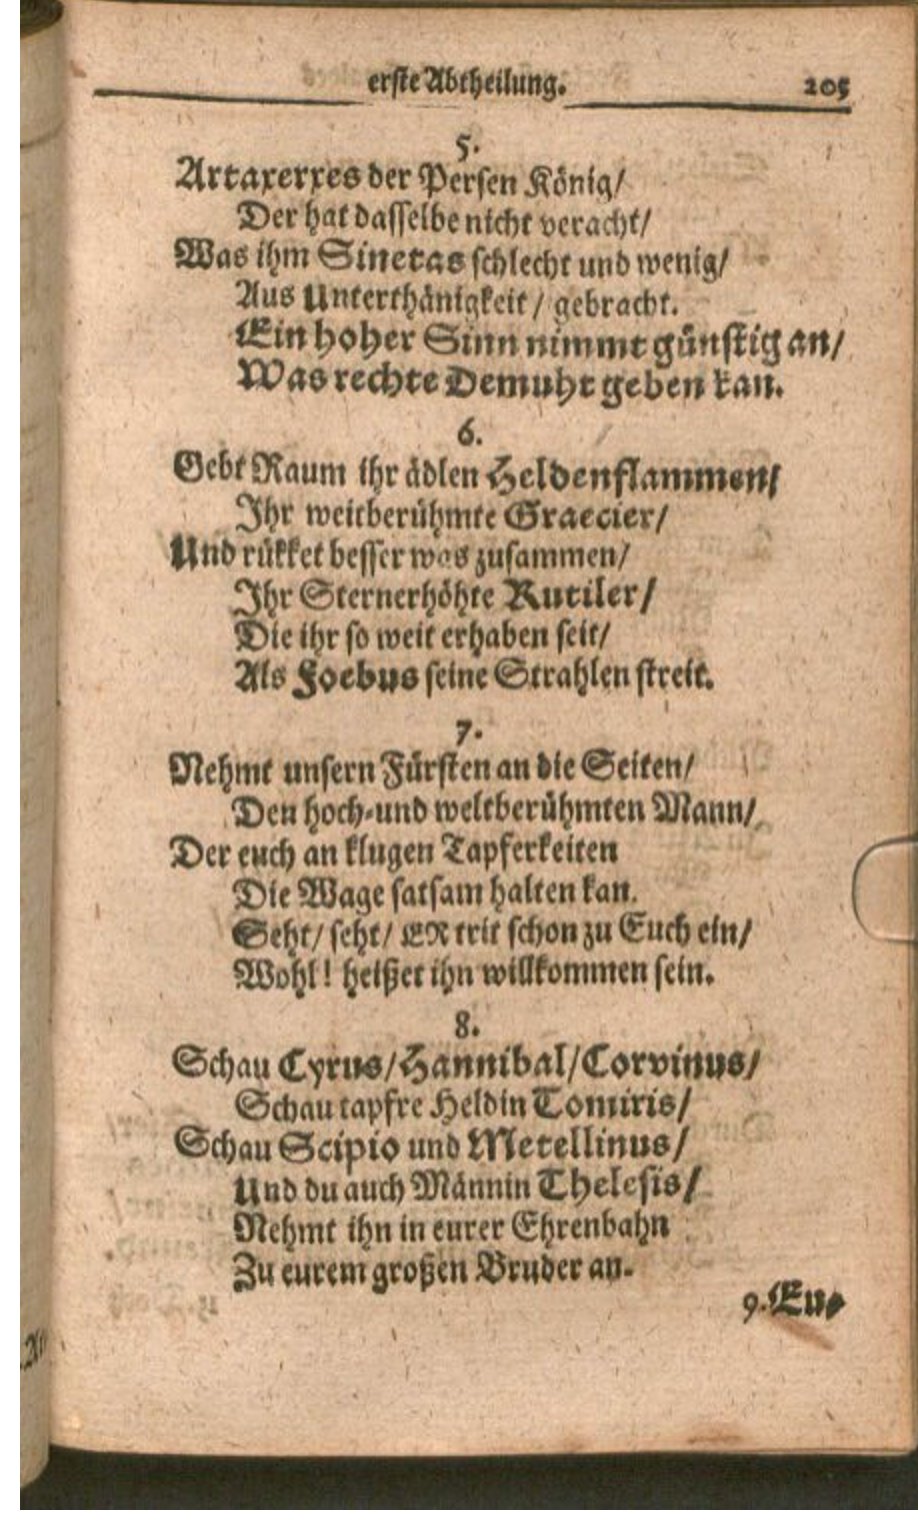 erste Abtheilung. 205
5.
Artaxerxes der Persen König/
Der hat dasselbe nicht veracht/
Was ihm Sinetas schlecht und wenig/
Aus Unterthänigkeit/ gebracht.
Ein hoher Sinn nimmt günstig an/
Was rechte Demuht geben kan.
6.
Gebt Raum ihr ädlen Heldenflammen/
Ihr weitberühmte Graecier/
Und rükket besser was zusammen/
Ihr Sternerhöhte Rutiler/
Die ihr so weit erhaben seit/
Als Foebus seine Strahlen streit.
7.
Nehmt unsern Fürsten an die Seiten/
Den hoch-und weltberühmten Mann/
Der euch an klugen Tapferkeiten
Die Wage satsam halten kan.
Seht/ seht/ ER trit schon zu Euch ein/
Wohl! heißet ihn willkommen sein.
8.
Schau Cyrus/ Hannibal/ Corvinus/
Schau tapfre Heldin Tomiris/
Schau Scipio und Metellinus/
Und du auch Männin Thelesis/
Nehmt ihn in eurer Ehrenbahn
Zu eurem großen Bruder an.
9. Eu-